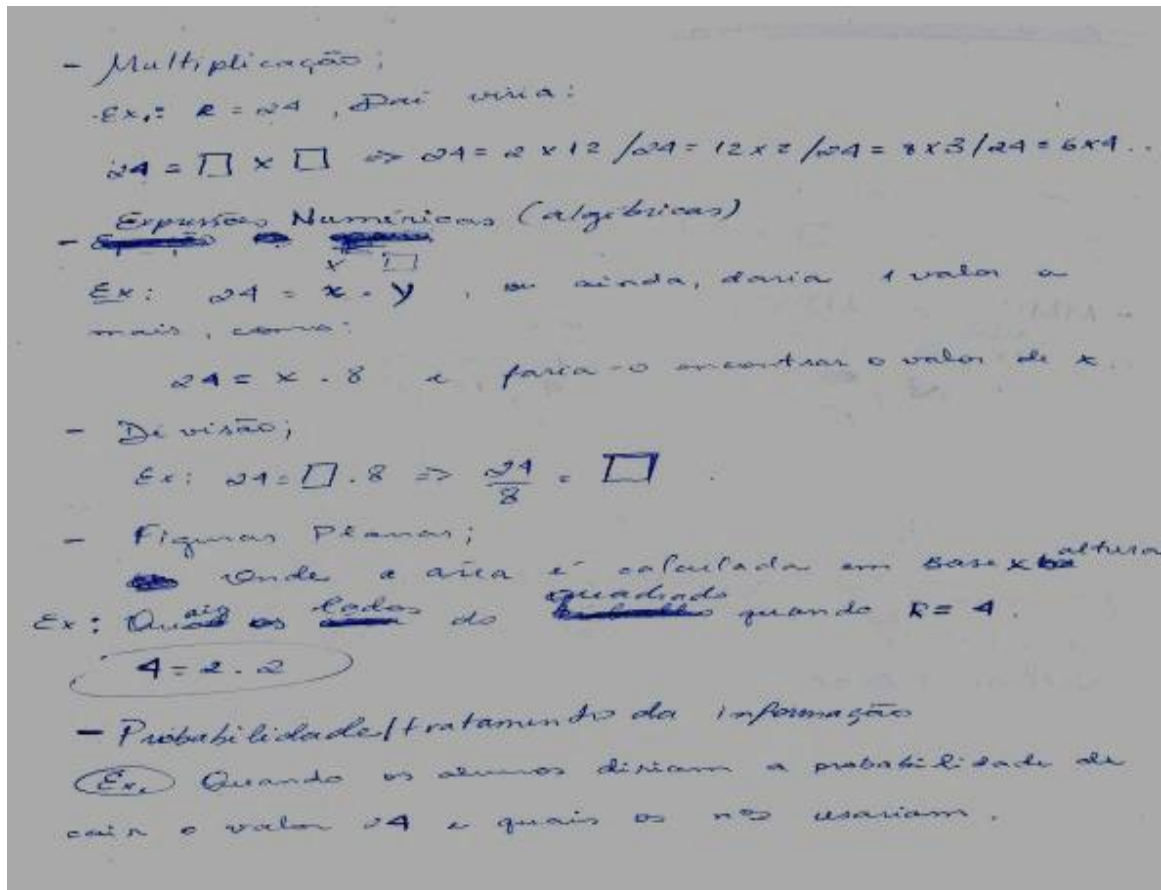 - Multiplicação;
Ex.: R = 24, Daí viria:
24 = □ x □ => 24 = 2 x 12 / 24 = 12 x 2 / 24 = 8 x 3 / 24 = 6 x 4 ..
- Expressões Numéricas (algébricas)
x □
Ex: 24 = x . y , ou ainda, daria 1 valor a
mais, como:
24 = x . 8 e faria-o encontrar o valor de x.
- Divisão;
Ex: 24 = □ . 8 => 24/8 = □ .
- Figuras Planas;
Onde a área é calculada em Base x altura
Ex: Quais os lados do quadrado quando R = 4.
4 = 2 . 2
- Probabilidade/tratamento da informação
Ex. Quando os alunos diriam a probabilidade de
cair o valor 24 e quais os nos usariam.